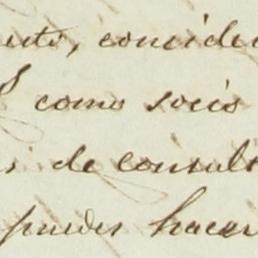 conside
como socio
de consult
puedes hacer